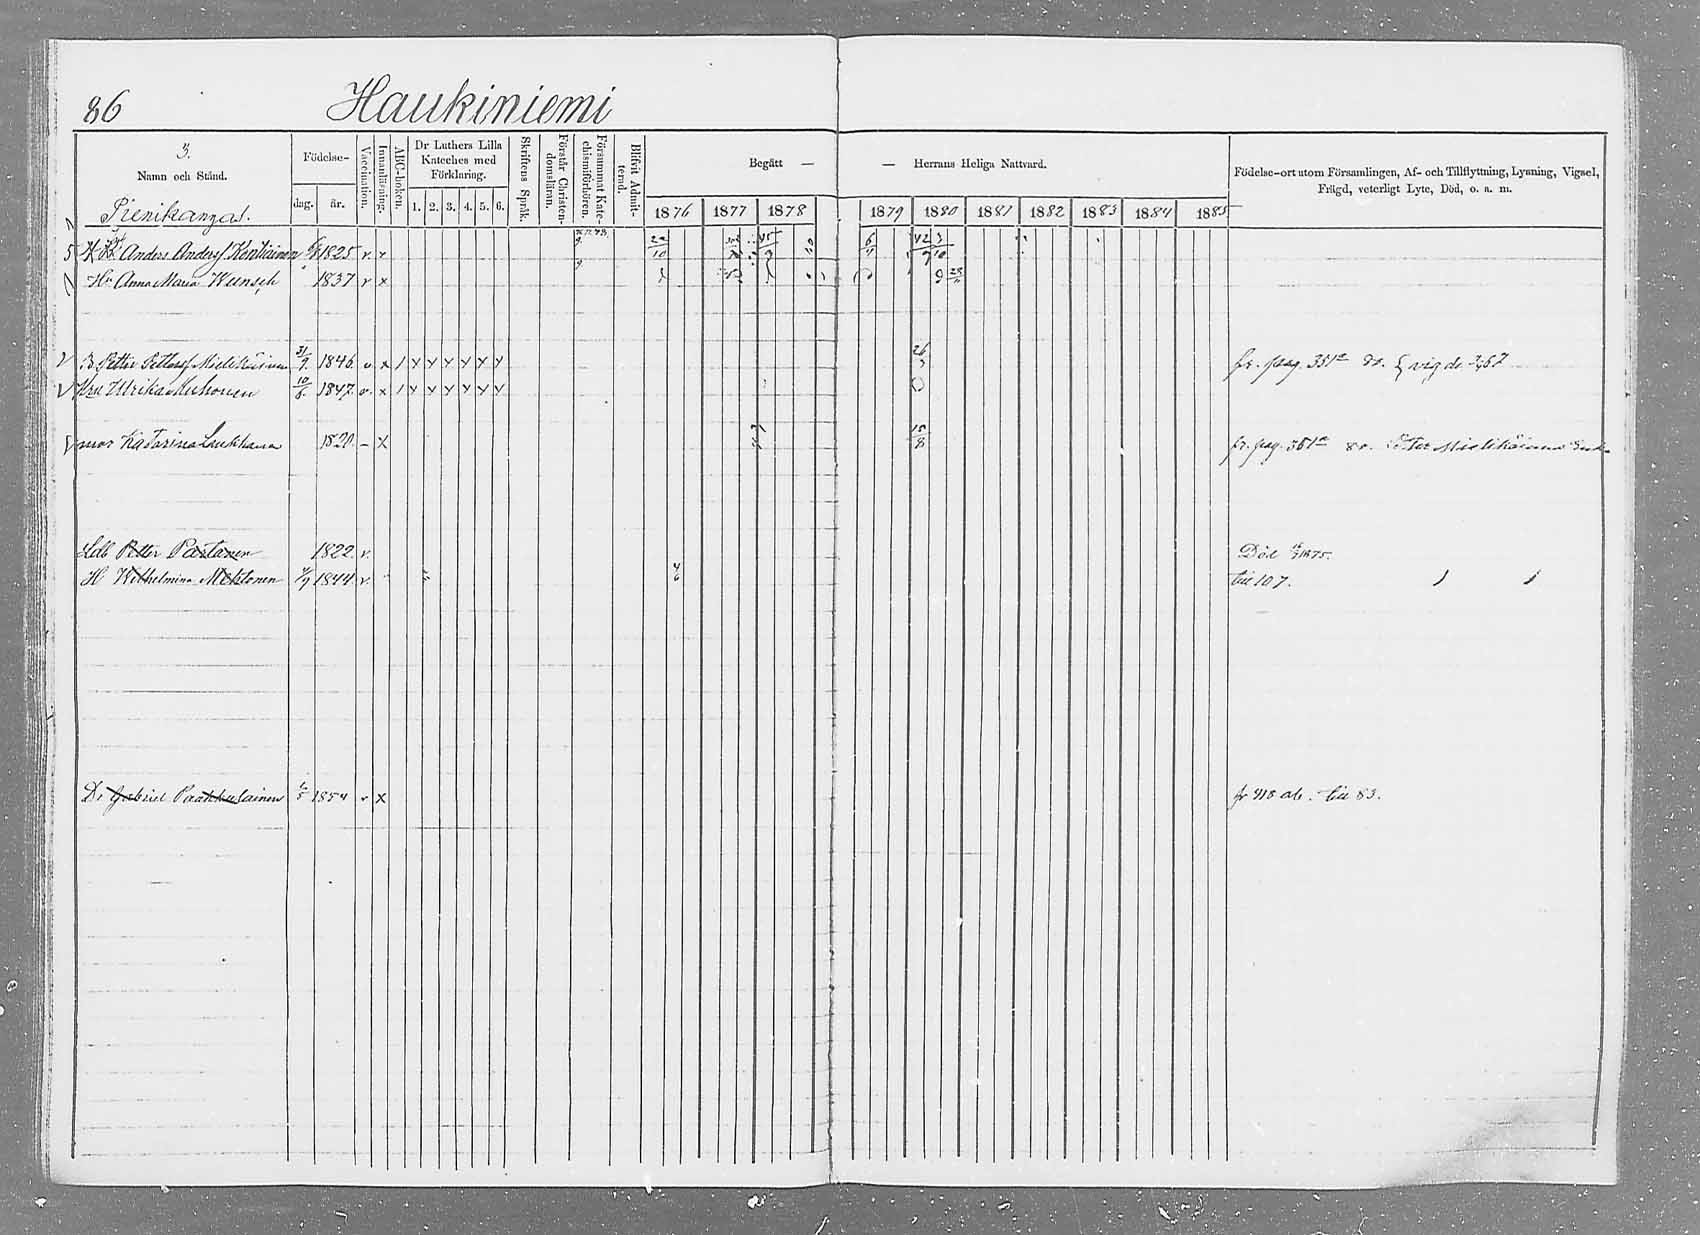 86 Haukiniemi
3.
Namn och Stånd.
Födelse-
dag. år.
Vaccination.
Innanläsning.
ABC-boken.
Dr Luthers Lilla
Kateches med
Förklaring.
1. 2. 3. 4. 5. 6.
Skriftens Språk.
Förstår Christen-
domsläran.
Försummat Kate-
chismiförhören.
Blifvit Admit-
terad.
Begått — — Herrans Heliga Nattvard.
1876 1877 1878 1879 1880 1881 1882 1883 1884 1885
Födelse-ort utom Församlingen, Af- och Tillflyttning, Lysning, Vigsel,
Frägd, veterligt Lyte, Död, o. a. m.
Pienikangas.
Anders Anders 1825 v x
Hu Anna Maria 1837 v x
B. Petter Mielikäinen 31/9 1846 v x 1 x x x x x x 26 fr. pag. 351 80.
Ulrika 10/8 1847 v x 1 x x x x x x
mor Katarina Laukkanen 1820 – x 15/8 fr. pag. 351 80. Petter Mielikäinens
Petter Partanen 1822 v. Död 1875.
H Wilhelmina 1844 v. 4/6 till 107.
Dr Gabriel Paakkulainen 1854 v x fr 918 ab. till 83.